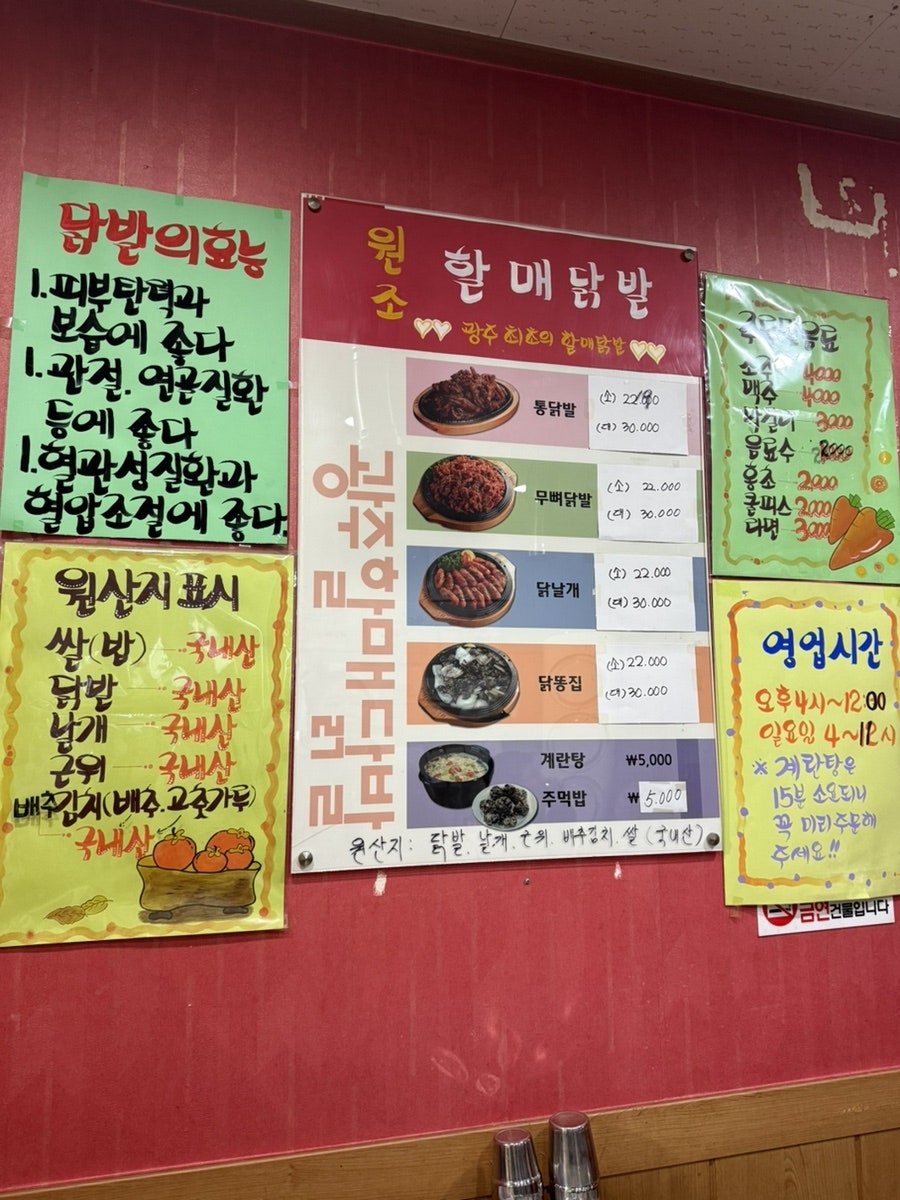 닭발의효능
1. 피부탄력과
보습에 좋다
1. 관절. 연골질환
등에 좋다
1. 혈관성질환과
혈압조절에 좋다
원산지 표시
쌀(밥) 국내산
닭발 국내산
날개 국내산
근위 국내산
배추김치(배추.고춧가루)
국내산
원조
할매닭발
광주 최초의 할매닭발
광주할매닭발
통닭발
(소)
(대) 30.000
무뼈닭발
(소) 22.000
(대) 30.000
닭날개
(소) 22.000
(대) 30.000
닭똥집
(소) 22.000
(대) 30.000
계란탕 ₩5,000
주먹밥 ₩5.000
원산지: 닭발. 날개. 근위. 배추김치. 쌀 (국내산)
소주 4000
맥주 4000
막걸리 3000
음료수 2000
홍초 2000
쿨피스 2000
라면 3000
영업시간
오후4시~12:00
일요일 4~12시
※ 계란탕은
15분 소요되니
꼭 미리주문해
주세요!!
금연건물입니다